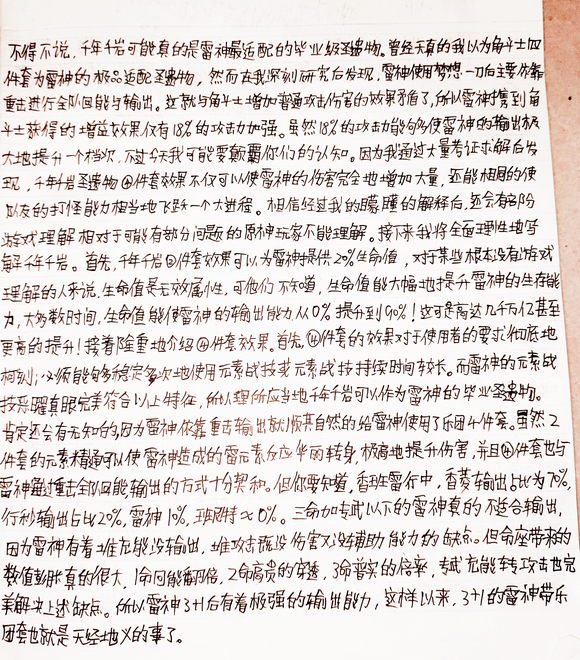 不得不说,千年千岩可能真的是雷神最适配的毕业级圣遗物。曾经天真的我以为角斗士四
件套为雷神的极品适配圣遗物,然而在我深刻研究后发现,雷神使用梦想一刀后主要依靠
重击进行全队回能与输出。这就与角斗士增加普通攻击伤害的效果矛盾了,所以雷神携到角
斗士获得的增益效果仅有18%的攻击力加强。虽然18%的攻击力能够使雷神的输出极
大地提升一个档次,不过今天我可能要颠覆你们的认知。因为我通过大量考证求解后发
现,千年千岩圣遗物④件套效果不仅可以使雷神的伤害完全地增加大量,还能相同的使
队友的打怪能力相当地飞跃一个大进程。相信经过我的朦胧的解释后,还会有部份
游戏理解相对于可能有部分问题的原神玩家不能理解。接下来我将全面理性地讲
解千年千岩。首先,千年千岩②件套效果可以为雷神提供20%生命值,对于某些根本没有游戏
理解的人来说,生命值是无效属性,可他们不知道,生命值能大幅地提升雷神的生存能
力,大多数时间,生命值能使雷神的输出能力从0%提升到90%!这可是高达几千万亿甚至
更高的提升!接着隆重地介绍④件套效果。首先,④件套的效果对于使用者的要求彻底地
苛刻;必须能够稳定多次地使用元素战技或元素战技持续时间较长。而雷神的元素战
技恶曜真眼完美符合以上特征,所以理所应当地千年千岩可以作为雷神的毕业圣遗物。
肯定还会有无知的,因为雷神依靠重击输出就顺其自然的给雷神使用了乐团4件套。虽然2
件套的元素精通可以使雷神造成的雷元素反应华丽转身,极高地提升伤害,并且④件套也与
雷神通过重击全队回能输出的方式十分契和。但你要知道,香班雷行中,香菱输出占比为70%,
行秋输出占比20%,雷神10%,班尼特≈0%。三命加专武以下的雷神真的不适合输出,
因为雷神有着堆充能没输出,堆攻击既没伤害又没辅助能力的缺点。但命座带来的
数值膨胀真的很大,1命回能翻倍,2命高贵的穿透,3命普实的倍率,专武充能转攻击也完
美解决上述缺点。所以雷神3+1后有着极强的输出能力,这样以来,3+1的雷神带乐
团套也就是天经地义的事了。